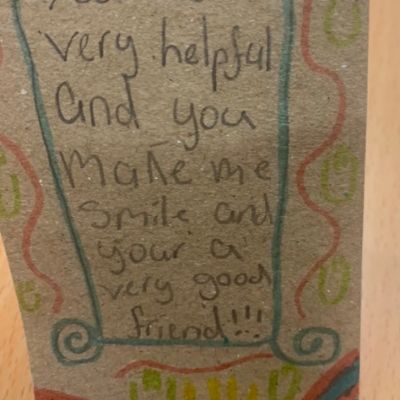 very helpful
and you
make me
smile and
your a
very good
friend!!!